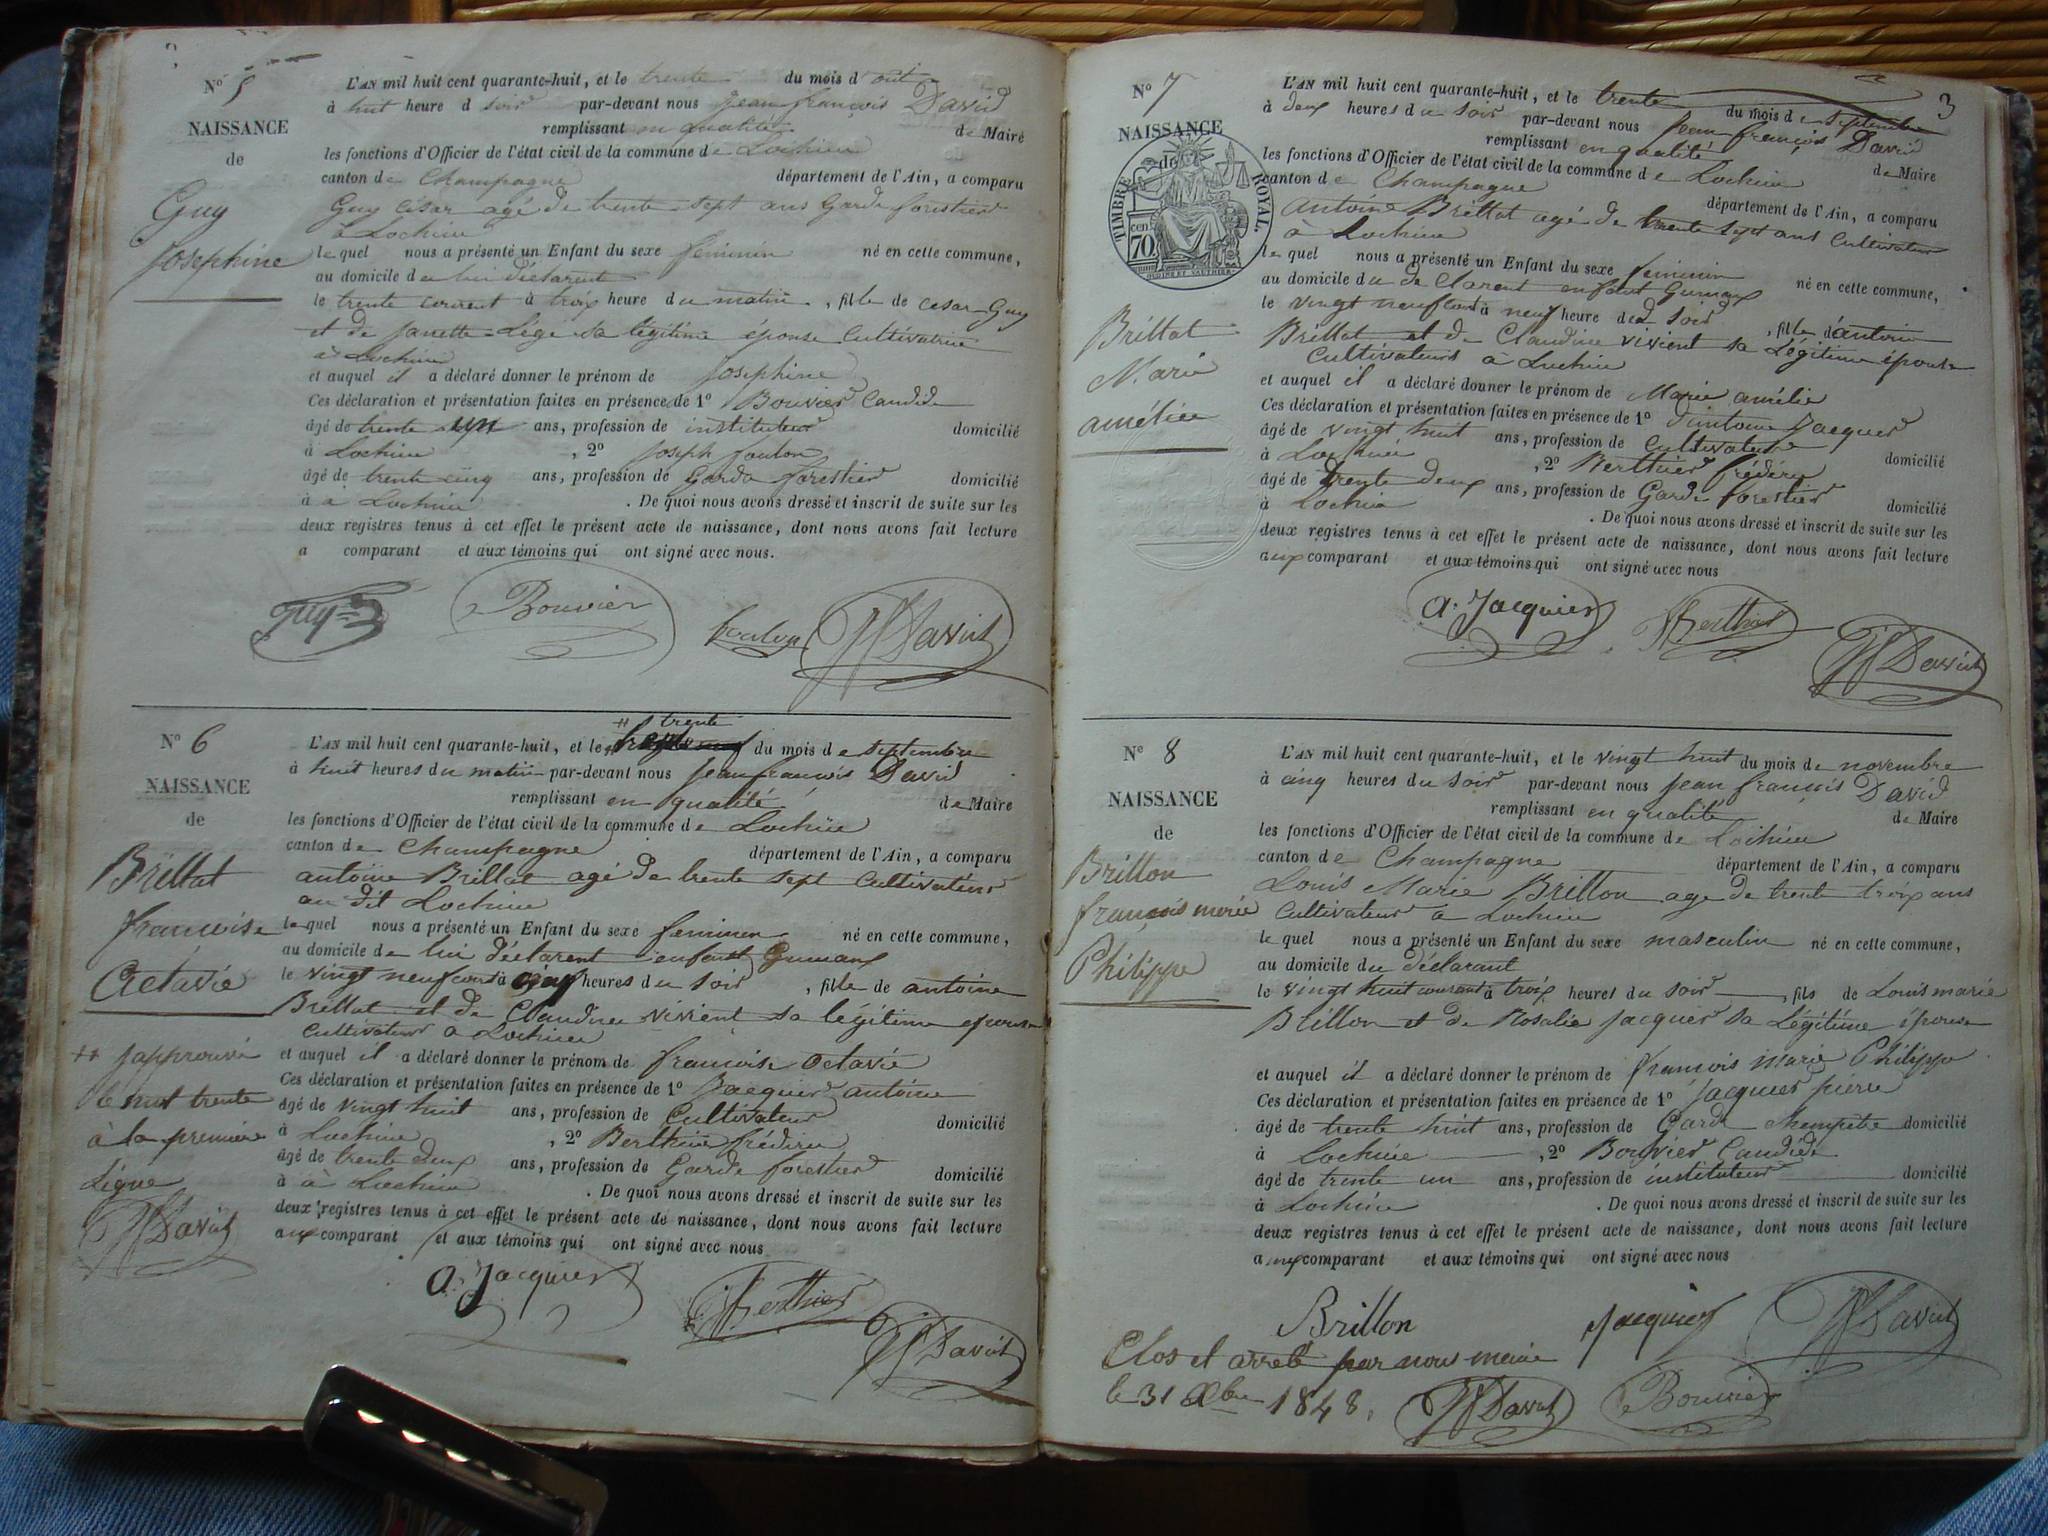 N° 5
NAISSANCE
de
Guy
Josephine
L'AN mil huit cent quarante-huit, et le trente du mois d'out
à huit heure d soir par-devant nous Jean françois David
remplissant en qualité de Maire
les fonctions d'Officier de l'état civil de la commune de Lochieu
canton de Champagne département de l'Ain, a comparu
Guy César agé de trente-sept ans Garde forestier
à Lochieu
le quel nous a présenté un Enfant du sexe feminin né en cette commune,
au domicile de lui déclarent
le trente courent à troix heure du matin, fille de cesar Guy
et de Janette Lége sa légitime épouse Cultivatrice
à Lochieu
et auquel il a déclaré donner le prénom de Josephine
Ces déclaration et présentation faites en présence de 1° Bouvier Candide
âgé de trente un ans, profession de instituteur domicilié
à Lochieu, 2° Joseph foulon
âgé de trente cinq ans, profession de Garde forestier domicilié
à à Lochieu. De quoi nous avons dressé et inscrit de suite sur les
deux registres tenus à cet effet le présent acte de naissance, dont nous avons fait lecture
a comparant et aux témoins qui ont signé avec nous.
Guy Bouvier foulon JF David
N° 6
NAISSANCE
de
Brillat
francoise
Octavie
# Japprouve
le mot trente
à la premiere
Ligne
JF David
# trente
L'AN mil huit cent quarante-huit, et le du mois de septembre
à huit heures du matin par-devant nous Jean francois David
remplissant en qualité de Maire
les fonctions d'Officier de l'état civil de la commune de Lochieu
canton de Champagne département de l'Ain, a comparu
antoine Brillat agé de trente sept Cultivateur
au dit Lochieu
le quel nous a présenté un Enfant du sexe feminen né en cette commune,
au domicile de lui déclarent enfant Gumaux
le vingt neuf courd à cinq heures du soir, fille de antoine
Brillat et de Claudine vivient sa légitime epouse
Cultivateur a Lochieu
et auquel il a déclaré donner le prénom de francoise Octavie
Ces déclaration et présentation faites en présence de 1° Jacquier antoine
âgé de vingt huit ans, profession de Cultivateur domicilié
à Lochieu, 2° Berthier frédéric
âgé de trente deux ans, profession de Garde forestier domicilié
à à Lochieu. De quoi nous avons dressé et inscrit de suite sur les
deux registres tenus à cet effet le présent acte de naissance, dont nous avons fait lecture
aux comparant et aux témoins qui ont signé avec nous
A. Jacquier Berthier JF David
3
N° 7
NAISSANCE
de
TIMBRE ROYAL
70 cen
Brillat
Marie
amélie
L'AN mil huit cent quarante-huit, et le trente du mois de septembre
à deux heures du soir par-devant nous Jean françois David
remplissant en qualité de Maire
les fonctions d'Officier de l'état civil de la commune de Lochieu
canton de Champagne département de l'Ain, a comparu
antoine Brillat agé de trente sept ans Cultivateur
à Lochieu
le quel nous a présenté un Enfant du sexe feminin né en cette commune,
au domicile du de Clarent enfant Gumaux
le vingt neuf courd à neuf heure du soir, fille d'antoine
Brillat et de Claudine vivient sa Légitime épouse
Cultivateurs à Lochieu
et auquel il a déclaré donner le prénom de Marie amélie
Ces déclaration et présentation faites en présence de 1° antoine Jacquier
âgé de vingt huit ans, profession de Cultivateur domicilié
à Lochieu, 2° Berthier frédéric
âgé de trente deux ans, profession de Garde forestier domicilié
à Lochieu. De quoi nous avons dressé et inscrit de suite sur les
deux registres tenus à cet effet le présent acte de naissance, dont nous avons fait lecture
aux comparant et aux témoins qui ont signé avec nous
A. Jacquier Berthier JF David
N° 8
NAISSANCE
de
Brillon
françois marie
Philippe
L'AN mil huit cent quarante-huit, et le vingt huit du mois de novembre
à cinq heures du soir par-devant nous Jean françois David
remplissant en qualité de Maire
les fonctions d'Officier de l'état civil de la commune de Lochieu
canton de Champagne département de l'Ain, a comparu
Louis Marie Brillon age de trente troix ans
Cultivateur à Lochieu
le quel nous a présenté un Enfant du sexe masculin né en cette commune,
au domicile du déclarant
le vingt huit courant à troix heures du soir, fils de Louis marie
Brillon et de Rosalie Jacquier sa Légitime épouse
et auquel il a déclaré donner le prénom de françois marie Philippe
Ces déclaration et présentation faites en présence de 1° Jacquier pierre
âgé de trente huit ans, profession de Garde champetre domicilié
à Lochieu, 2° Bouvier Candide
âgé de trente un ans, profession de instituteur domicilié
à Lochieu. De quoi nous avons dressé et inscrit de suite sur les
deux registres tenus à cet effet le présent acte de naissance, dont nous avons fait lecture
aux comparant et aux témoins qui ont signé avec nous
Brillon Jacquier JF David
Clos et arreté par nous maire
le 31 Xbre 1848. JF David Bouvier